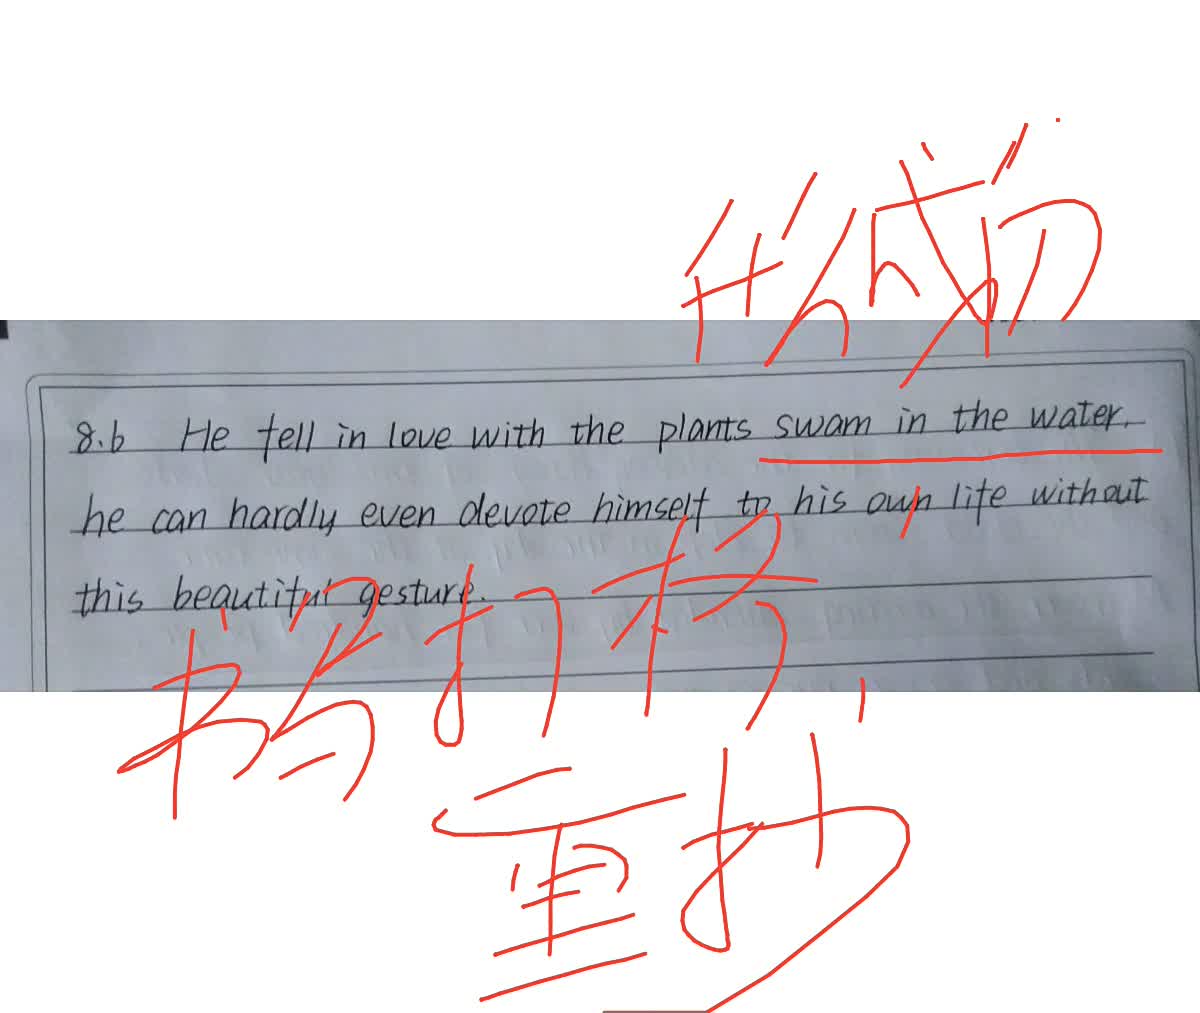 8.b He fell in love with the plants swam in the water.
he can hardly even devote himself to his own life without
this beautiful gesture.
重抄